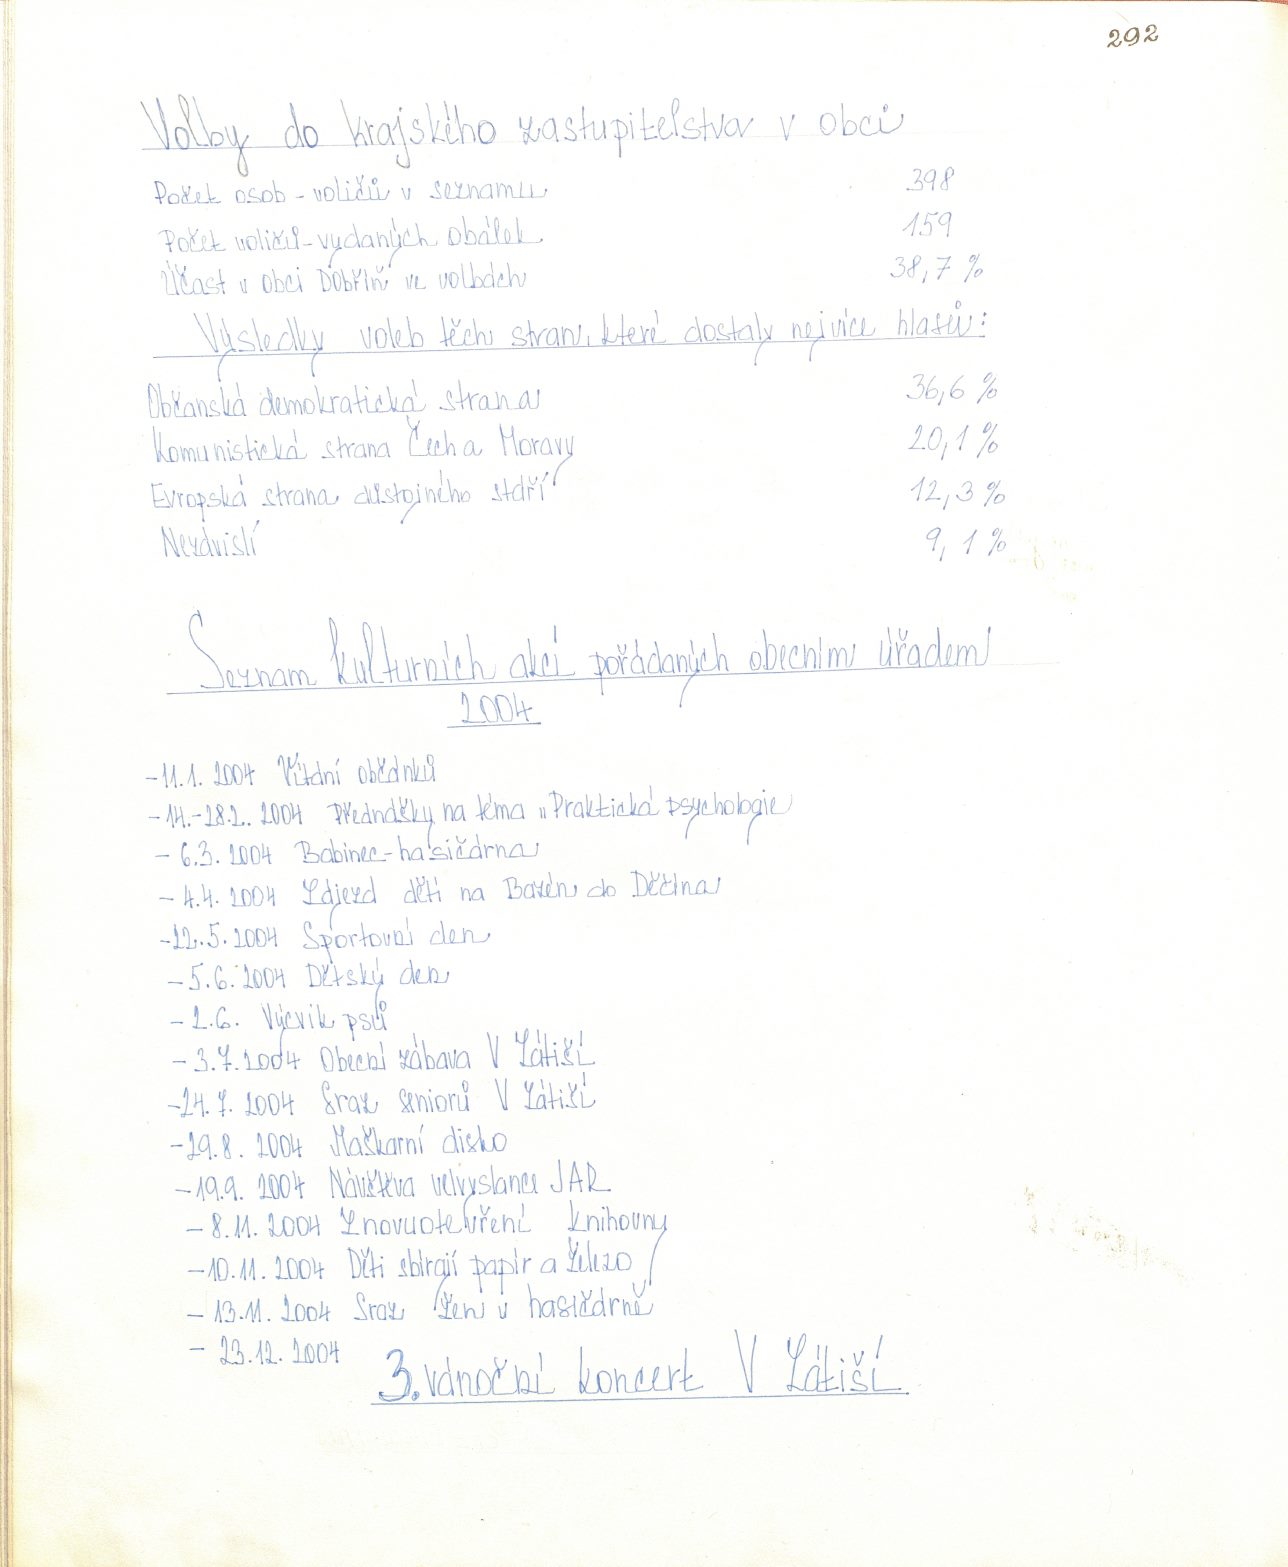 292
Volby do krajského zastupitelstva v obci
Počet osob - voličů v seznamu 398
Počet voličů - vydaných obálek 159
Účast v obci Dobříň ve volbách 38,7 %
Výsledky voleb těch stran, které dostaly nejvíce hlasů:
Občanská demokratická strana 36,6 %
Komunistická strana Čech a Moravy 20,1 %
Evropská strana důstojného stáří 12,3 %
Nezávislí 9,1 %
Seznam kulturních akcí pořádaných obecním úřadem
2004
- 11.1. 2004 Vítání občánků
- 14.-28.2. 2004 Přednášky na téma „Praktická psychologie
- 6.3. 2004 Babinec - hasičárna
- 4.4. 2004 Zájezd dětí na Bazén do Děčína
- 22.5. 2004 Sportovní den
- 5.6. 2004 Dětský den
- 2.6. Výcvik psů
- 3.7. 2004 Obecní zábava V Zátiší
- 24.7. 2004 Sraz seniorů V Zátiší
- 29.8. 2004 Maškarní disko
- 19.9. 2004 Návštěva velvyslance JAR
- 8.11. 2004 Znovuotevření knihovny
- 10.11. 2004 Děti sbírají papír a železo
- 13.11. 2004 Sraz žen v hasičárně
- 23.12. 2004 3. vánoční koncert V Zátiší